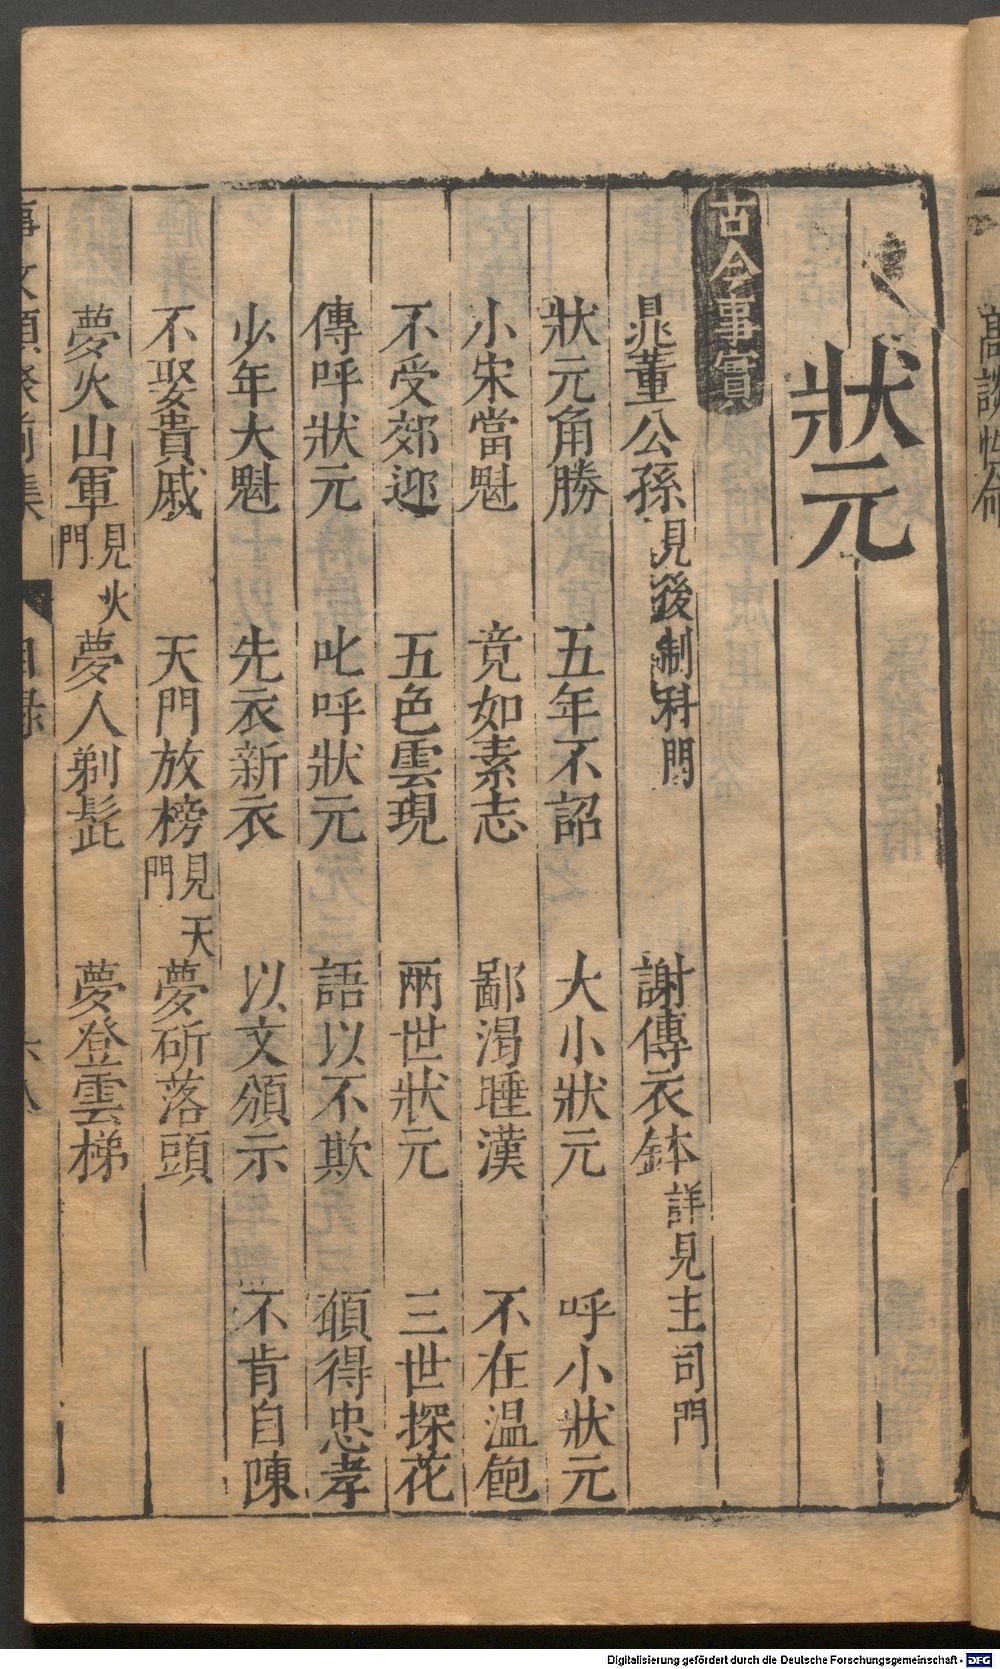 高談性命
狀元
古今事實
晁董公孫見後制科門 謝傳衣鉢詳見主司門
狀元角勝 五年不詔 大小狀元 呼小狀元
小宋當魁 竞如素志 鄙渴睡漢 不在温飽
不受郊迎 五色雲現 兩世狀元 三世探花
傳呼狀元 叱呼狀元 語以不欺 頟得忠孝
少年大魁 先衣新衣 以文頒示 不肯自陳
不娶貴戚 天門放榜見天門 夢斫落頭
夢火山軍見火門 夢人剃髭 夢登雲梯
事文類聚前集 目録 六八
Digitalisierung gefördert durch die Deutsche Forschungsgemeinschaft - DFG